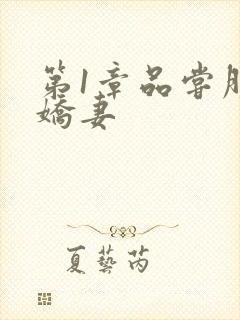 第1章品尝
娇妻
夏艺芮